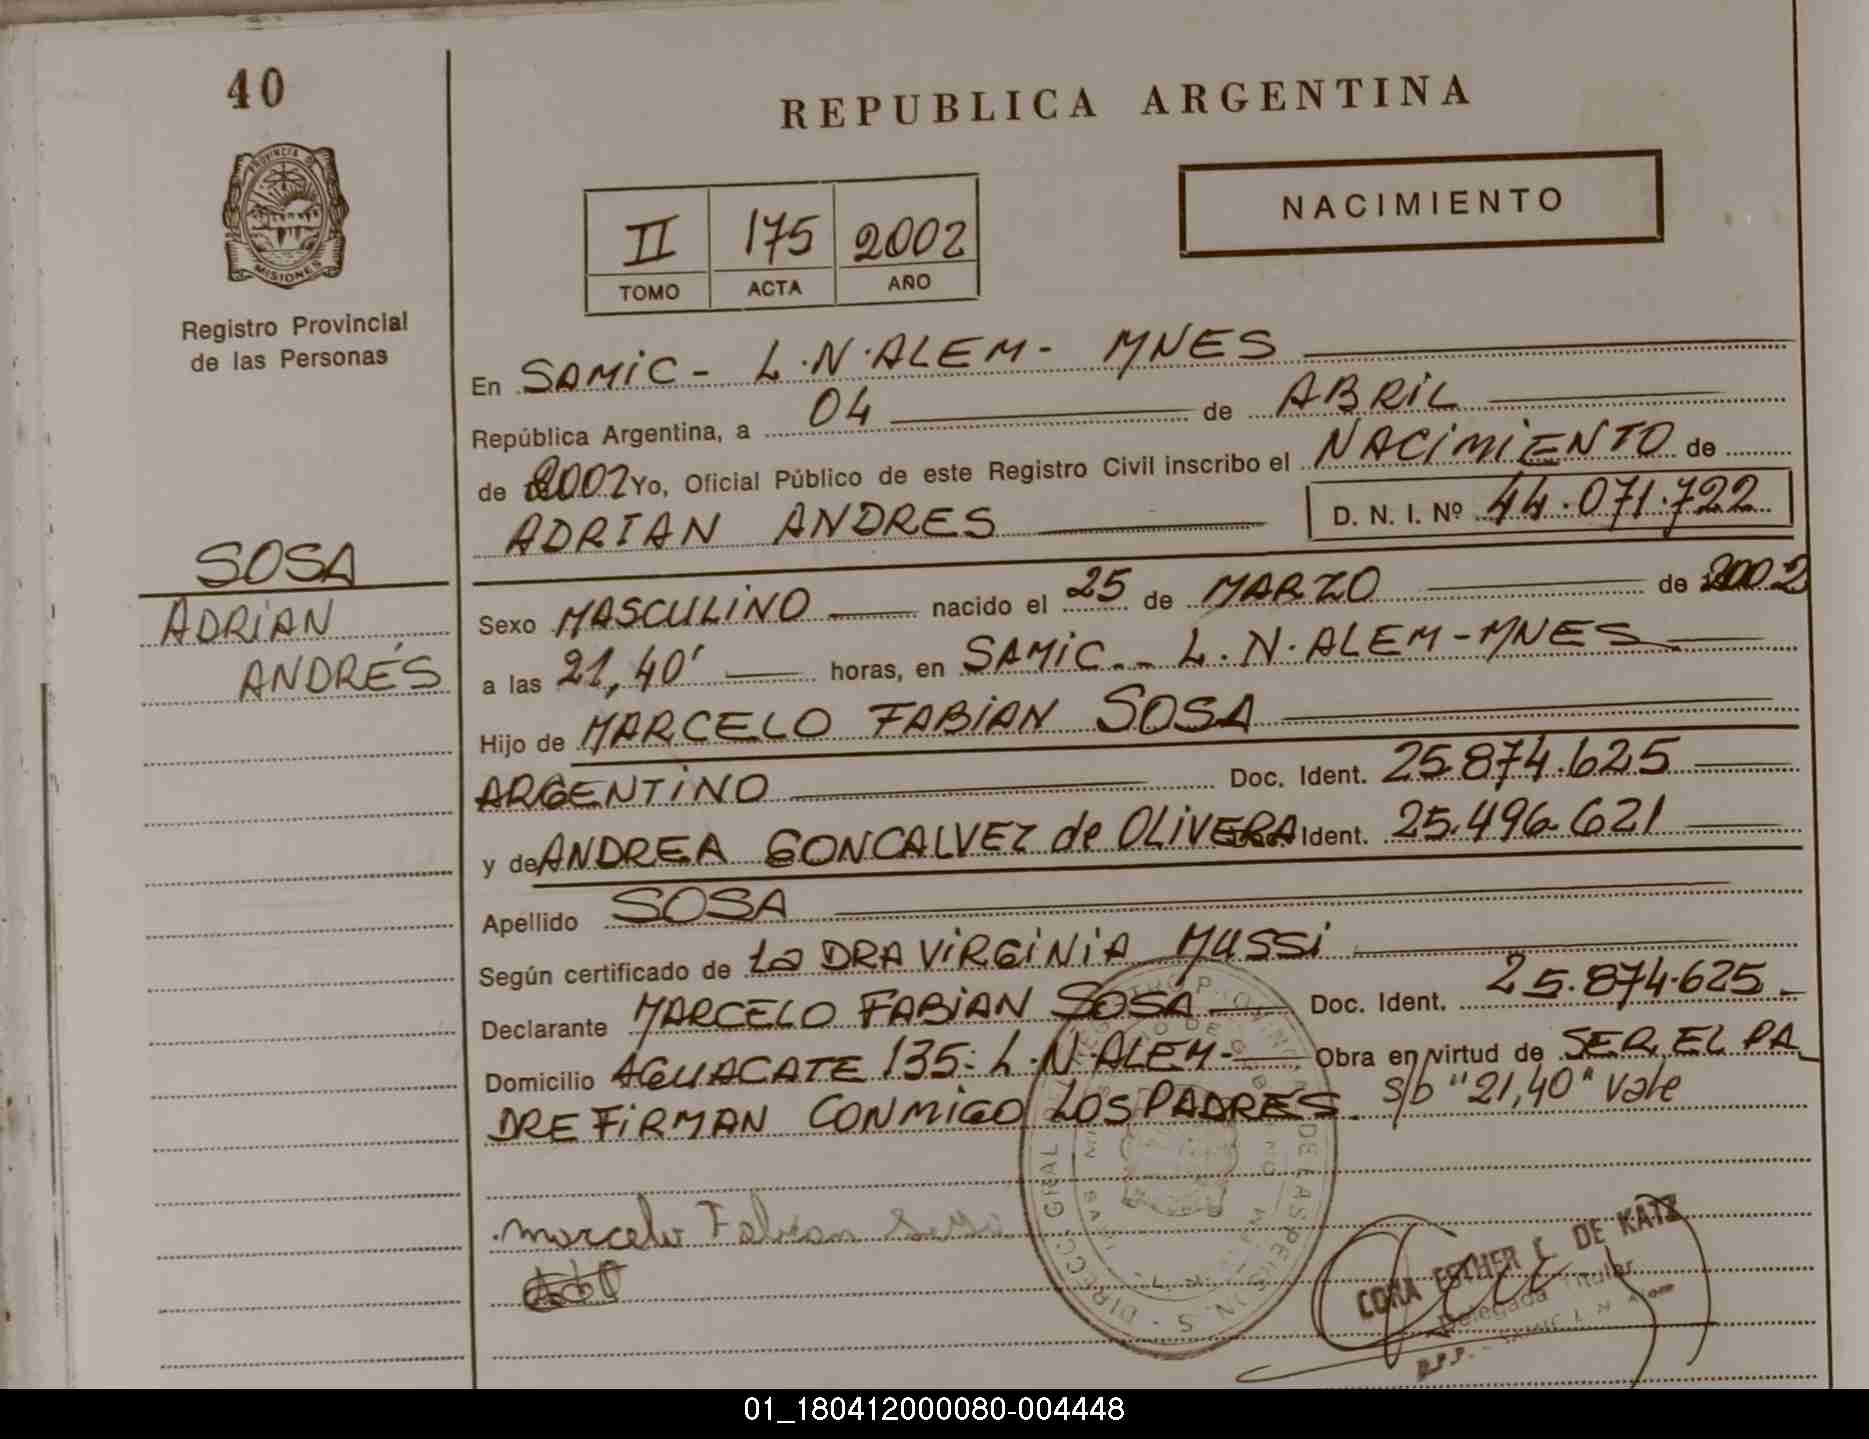 40
REPUBLICA ARGENTINA
PROVINCIA DE
MISIONES
Registro Provincial
de las Personas
II 175 2002
TOMO ACTA AÑO
NACIMIENTO
En SAMIC - L.N.ALEM - MNES
República Argentina, a 04 de ABRIL
de 2002 Yo, Oficial Público de este Registro Civil inscribo el NACIMIENTO de
ADRIAN ANDRES D. N. I. Nº 44.071.722
SOSA
ADRIAN
ANDRÉS
Sexo MASCULINO nacido el 25 de MARZO de 2002
a las 21,40' horas, en SAMIC - L.N.ALEM - MNES
Hijo de MARCELO FABIAN SOSA
ARGENTINO Doc. Ident. 25.874.625
y de ANDREA GONCALVEZ de OLIVERA Ident. 25.496.621
Apellido SOSA
Según certificado de La DRA VIRGINIA MUSSI
Declarante MARCELO FABIAN SOSA Doc. Ident. 25.874.625
Domicilio AGUACATE 135 - L.N.ALEM - Obra en virtud de SER EL PA
DRE FIRMAN CONMIGO LOS PADRES. s/b "21,40" Vale
marcelo Fabian Sosa
CORA ESTHER L. DE KATZ
Delegada Titular
R.P.P. - SAMIC L. N. Alem
01_180412000080-004448